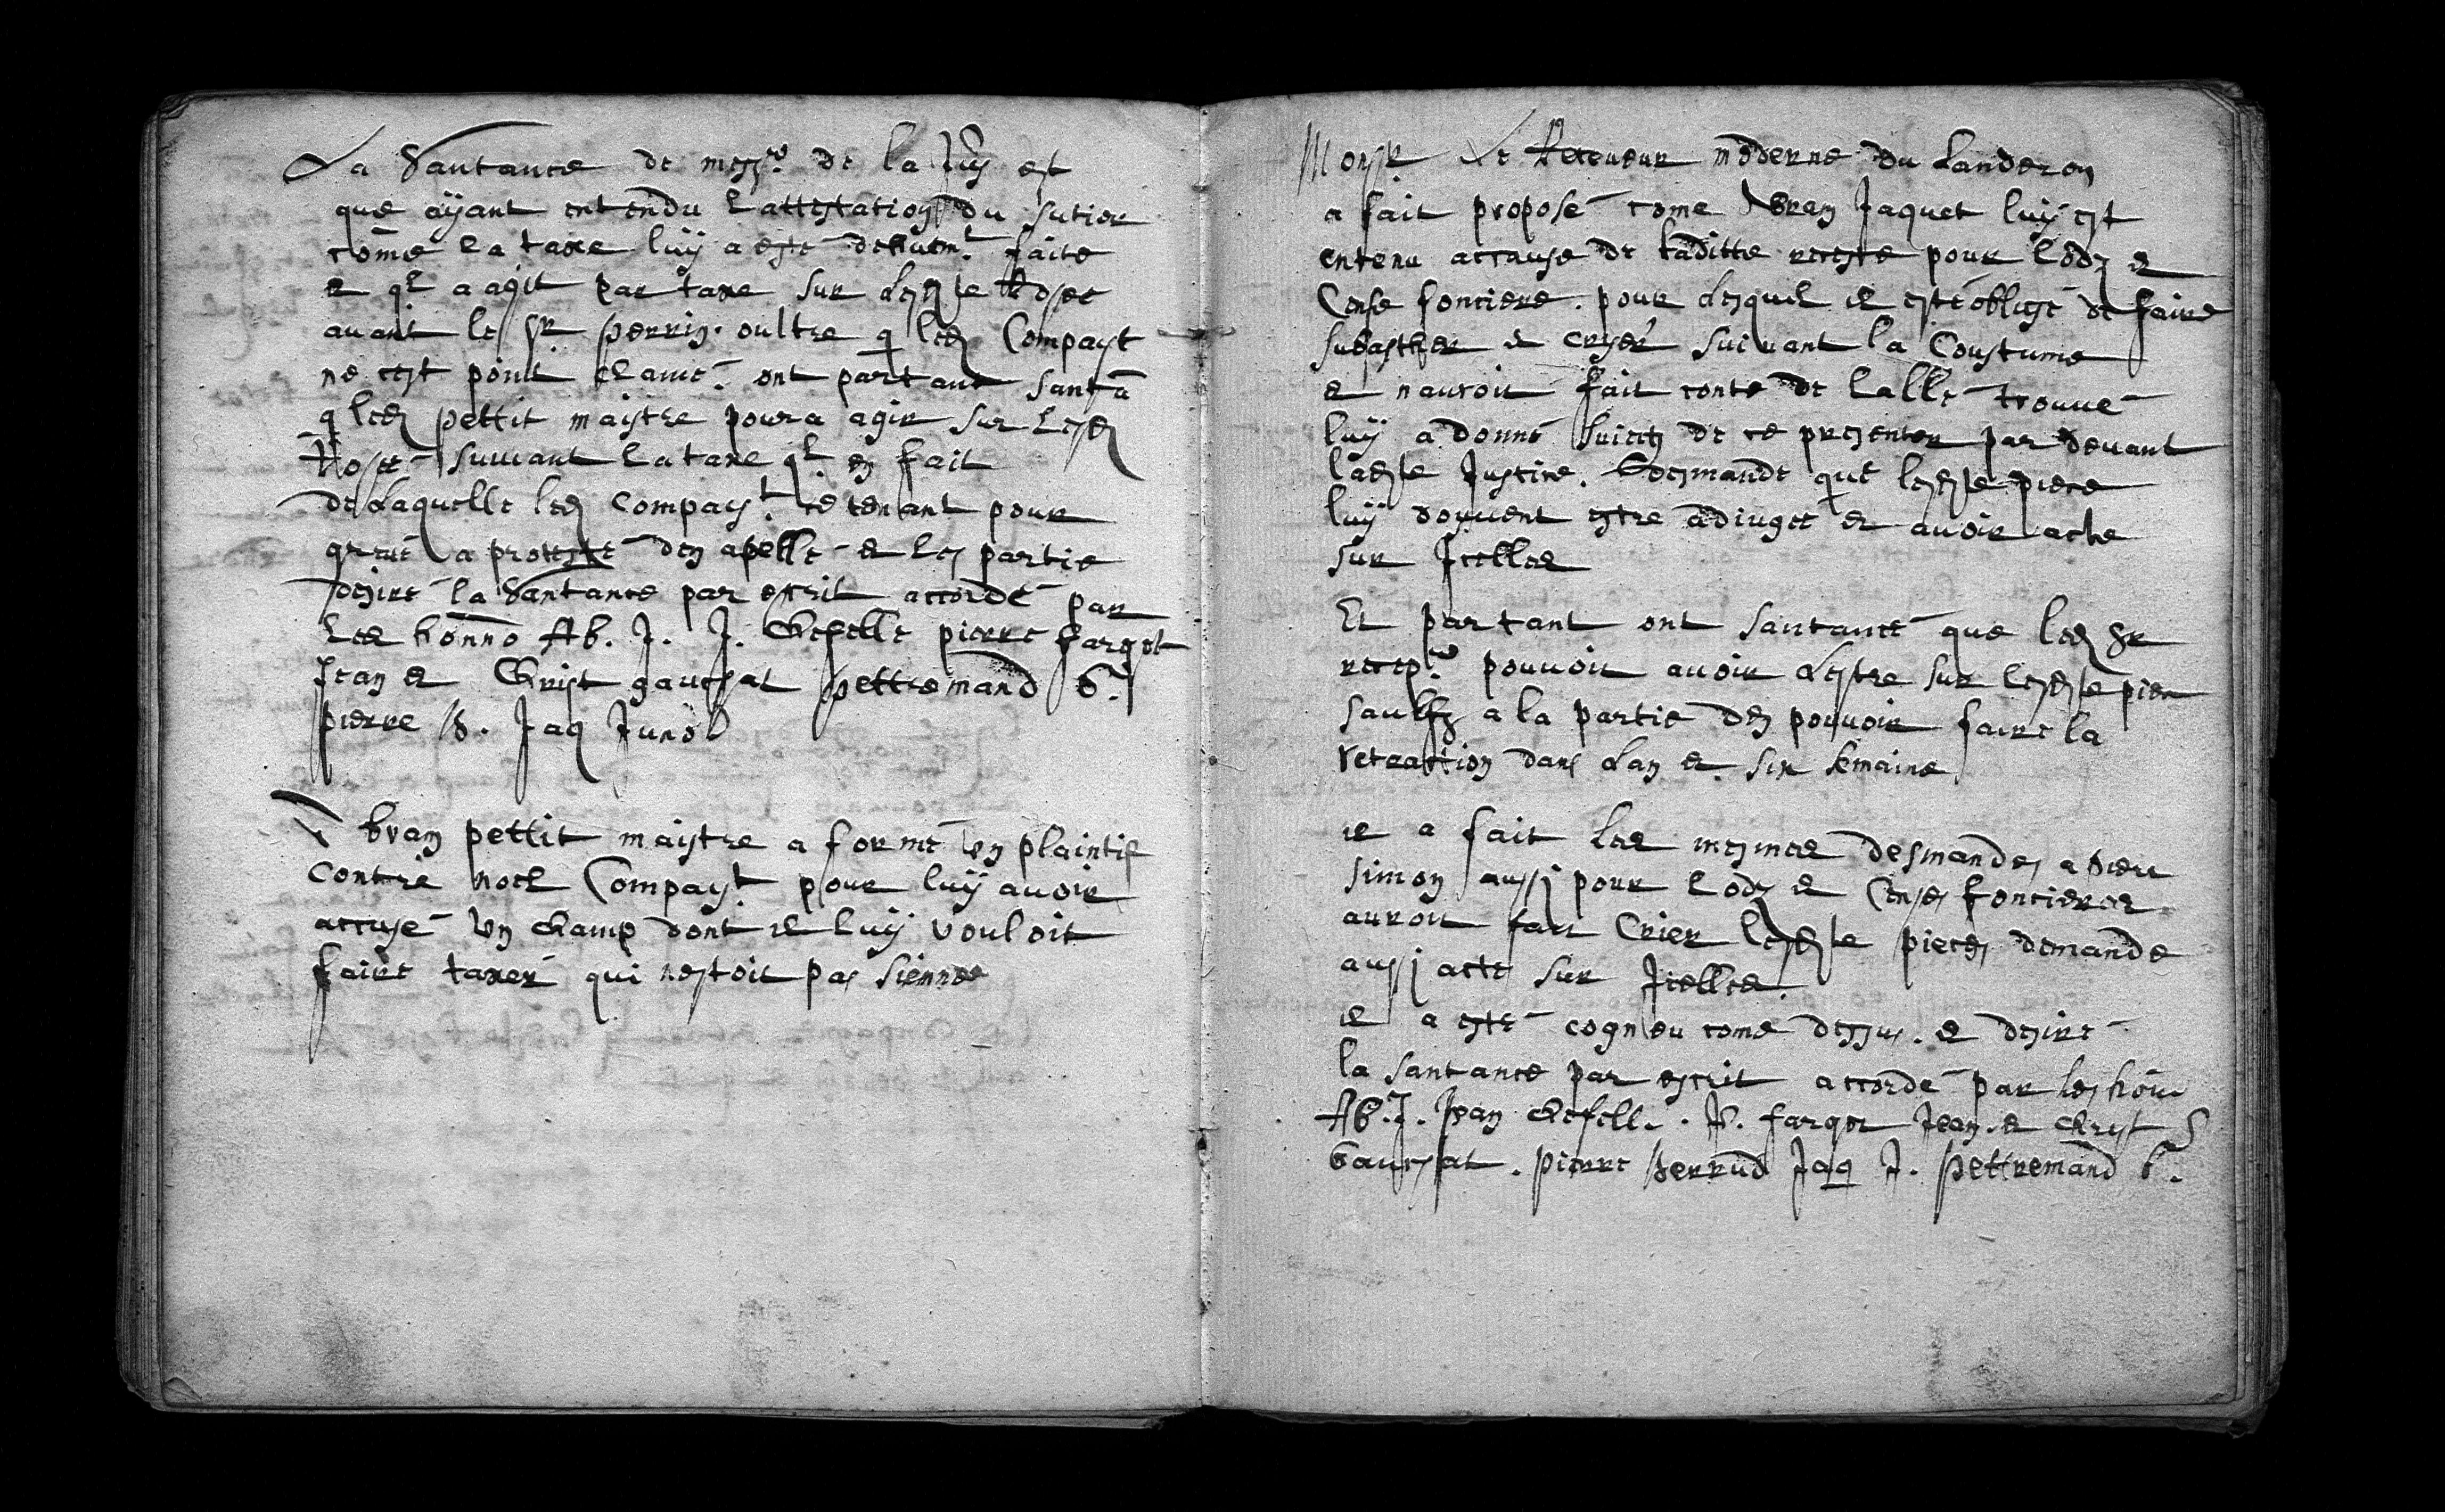 La Santance de mess.rs de la Jus est
que aÿant entendu lattestation du sutier
come la taxe luÿ a esté dehuem.t faite
et ql a agit par taxe sur lesd.te
auant le Sr perrin. oultre q led Compagt
ne cest point clamé. ont partant santã
q led pettit maistre poura agir sur lesd
suiuant la taxe ql en fait
de Laquelle led Compag.t ce tenant pour
greué a protesté den apelle et les partie
desire la Santance par escrit accordé par
les honno Ab. J. J. pierre fargot
Jean et Christ gauchat pettremand b.
pierre B. Jaq Junod
Abran pettit maistre a formé vn plaintif
contre noel Compag.t pour luÿ auoir
accusé vn champ dont il luÿ vouloit
faire taxer qui nestoit pas sienne
Monsr. Le Receueur moderne du Landeron
a fait proposé come Abran Jaquet luÿ est
entenu accause de laditte recepte pour lodz et
Cense fonciere. pour lesquel il est obligé de faire
subaster et cryer suiuant la Coustume
et nauroit fait conte de lalle trouué
luÿ a donné de ce presenter par deuant
lad.te Justice. desmande que lesd.te piece
luÿ doyuent estre adiugee et auoir acte
sur Jcelles
Et partant ont santancé que led Sr
recep.r pouuoit auoir lestre sur lesd.te piece
saulfz a la partie den pouuoir faire la
retraction dans lan et six semaine
il a fait les mesmes desmandes a piere
simon aussj pour lodz et Censes foncieres
auroit fait Crier lesd.te pieces demande
aussj acte sur Jcelles.
il a esté cogneu come dessus. et desire
la santance par escrit accordé par les hon
Ab. J. Jean. fargot Jean. et Christ
Gauchat. pierre perrud Jaq J. pettremand b.